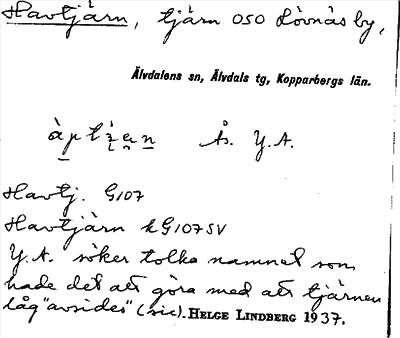 Havtjärn, tjärn OSO Lövnäs by,
Älvdalens sn, Älvdals tg, Kopparbergs län.
Y.A.
Havtj. G107
Havtjärn kG107SV
Y.A. söker tolka namnet som
hade det att göra med att tjärnen
låg "avsides" (sic). HELGE LINDBERG 1937.